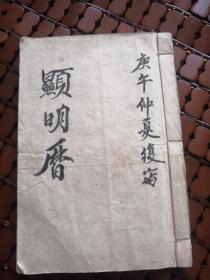 庚午仲夏復寫
顯明曆